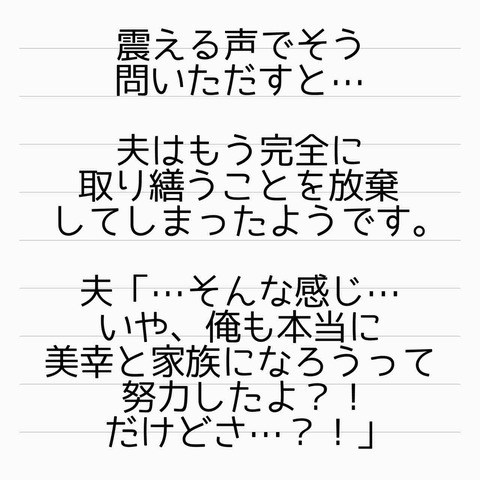 震える声でそう
問いただすと…
夫はもう完全に
取り繕うことを放棄
してしまったようです。
夫「…そんな感じ…
いや、俺も本当に
美幸と家族になろうって
努力したよ？！
だけどさ…？！」